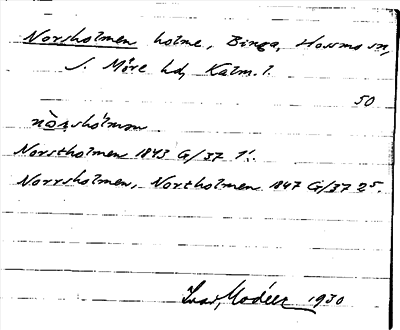 Norsholmen holme, Binga, Hossmo sn,
S. Möre hd, Kalm. l.
50
nò̱r̩shólmɘn
Norstholmen 1843 G/37 1¹.
Norrsholmen, Northolmen 1847 G/37 2⁵.
Ivar Modéer 1930